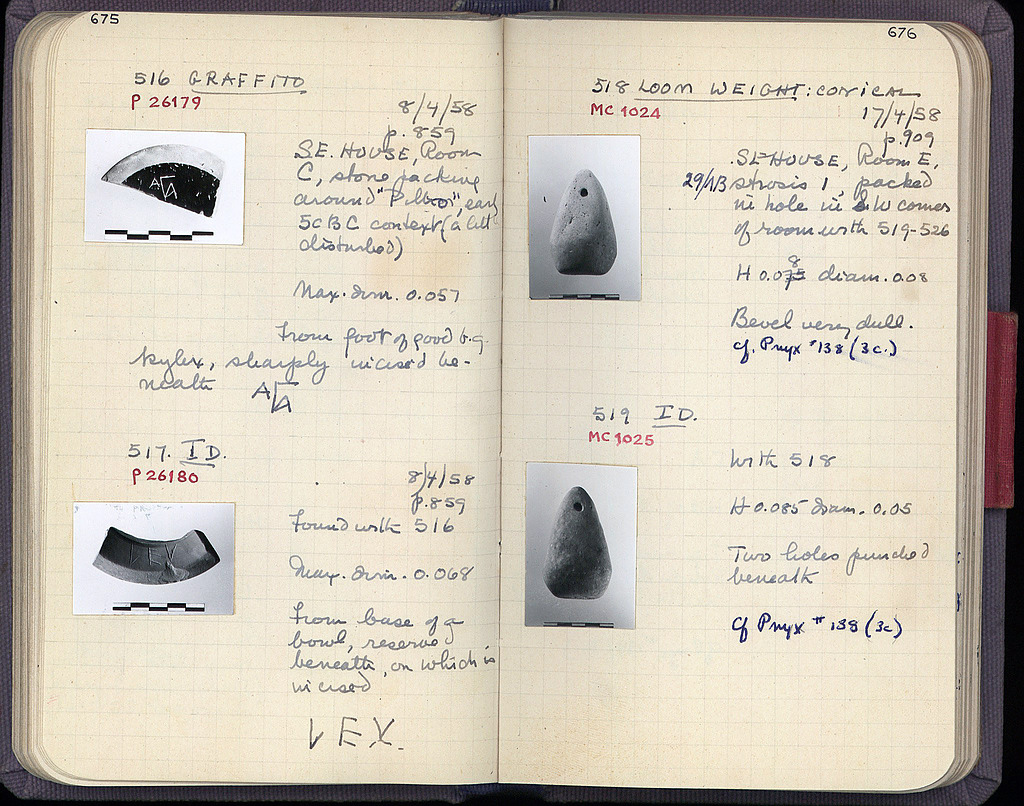 675
516 GRAFFITO
P 26179
8/4/58
p. 859
S.E. HOUSE, Room
C, stone packing
around "Pithos", early
5c BC context (a litt
disturbed)
Max. dim. 0.057
From foot of good b.g.
kylix, sharply incised be-
neath
517. ID.
P 26180
8/4/58
p. 859
Found with 516
Max. dim. 0.068
From base of a
bowl, reserved
beneath, on which is
incised
ΛEX.
676
518 LOOM WEIGHT: CONICAL
MC 1024
17/4/58
p. 909
SE HOUSE, Room E,
29/ΛB strosis 1, packed
in hole in SW corner
of room with 519-526
H 0.078 diam. 0.08
Bevel very dull.
cf. Pnyx #138 (3c.)
519 ID.
MC 1025
With 518
H 0.085 diam. 0.05
Two holes punched
beneath
cf Pnyx #138 (3c)